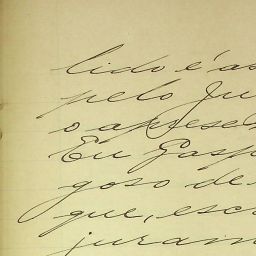 lido é as
pelo Ju
o apresen
Eu Gasp
goso de
que, esc
juram